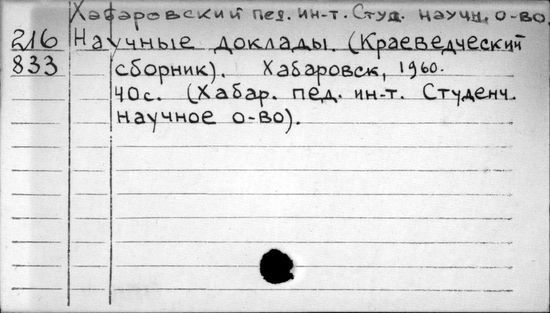 Хабаровский пед. ин-т. Студ. научн. о-во.
216 Научные доклады. (Краеведческий
833 сборник). Хабаровск, 1960.
40 с. (Хабар. пед. ин-т. Студенч.
научное о-во).